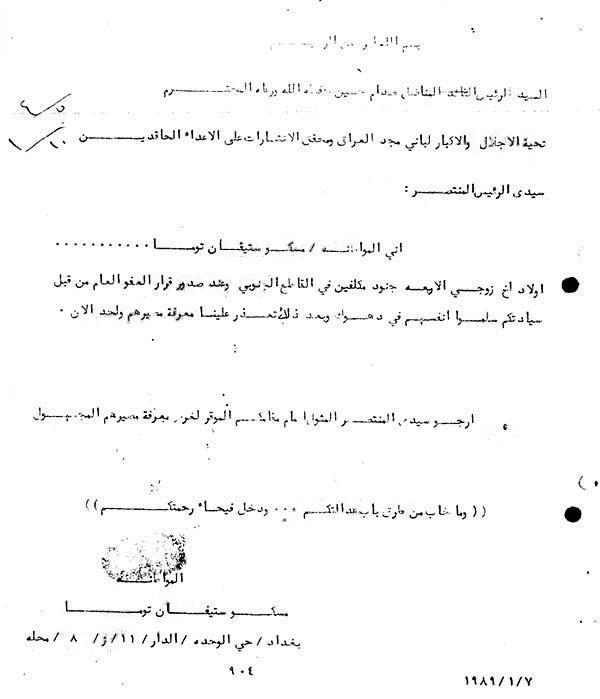 بسم الله الرحمن الرحيم
السيد الرئيس القائد المناضل صدام حسين حفظه الله ورعاه المحتـــــرم
تحية الاجلال والاكبار لباني مجد العراق ومحقق الانتصارات على الاعداء الحاقديـــن
سيدى الرئيس المنتصـــر :
اني المواطنـــه / مسكـــو ستيفـــان تومـــا ...........
اولاد اخ زوجـــي الاربعه جنود مكلفين في القاطع الجنوبي وعند صدور قرار العفو العام من قبل
سيادتكم سلمـــوا انفسهـــم في دهـــوك وبعد ذلك تعـــذر علينـــا معرفة مصيرهم ولحد الان .
ارجـــو سيدى المنتصـــر المثول امام مقامكـــم الموقر لغرض معرفة مصيرهم المجهـــول
(( وما خاب من طرق باب عدالتكـــم ... ودخل فيحاء رحمتكـــم ))
المواطنـــه
مسكـــو ستيفـــان تومـــا
بغداد / حي الوحده / الدار / ١١ / ز / ٨ / محله
٩٠٤
١٩٨٩/١/٧